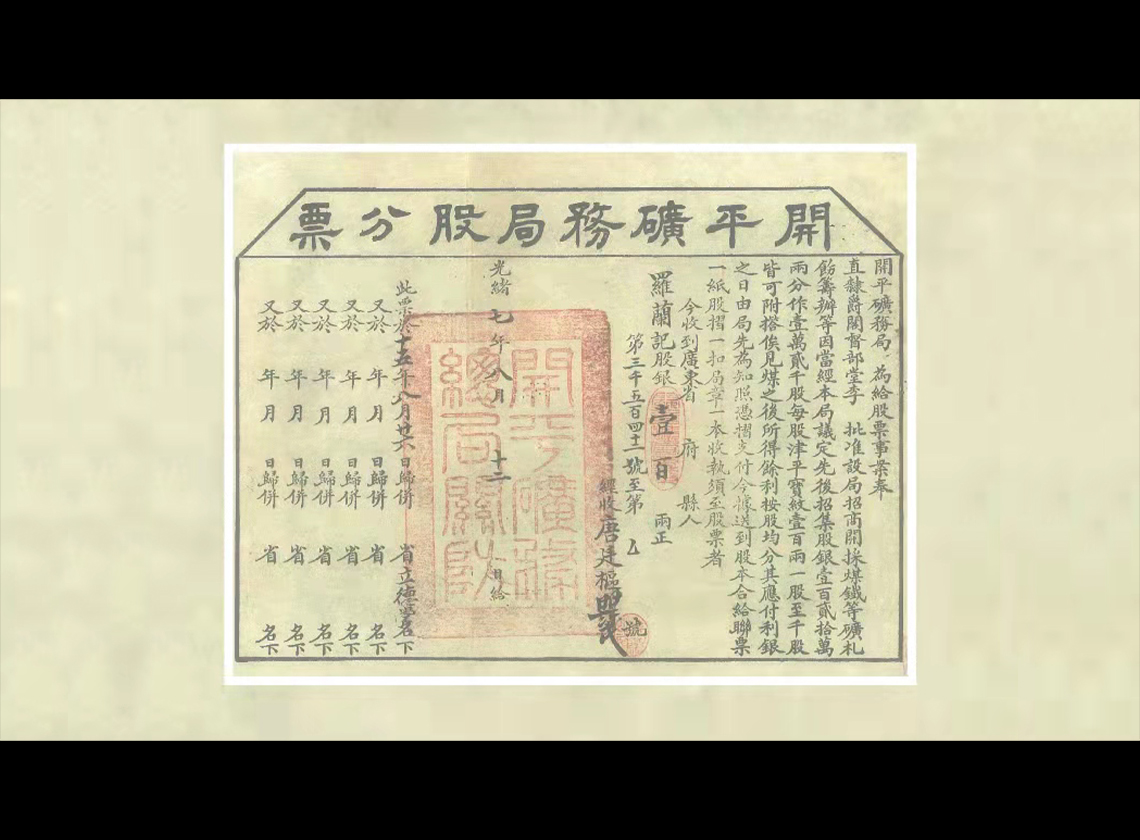 開平礦務局股分票
開平礦務局 為給股票事案奉
直隸爵閣督部堂李 批准設局招商開採煤鐵等礦札
飭籌辦等因當經本局議定先後招集股銀壹百貳拾萬
兩分作壹萬貳千股每股津平寶紋壹百兩一股至千股
皆可附搭俟見煤之後所得餘利按股均分其應付利銀
之日由局先為知照憑摺支付今據送到股本合給聯票
一紙股摺一扣局章一本收執須至股票者
今收到廣東省 府 縣人
羅蘭記股銀 壹百 兩正
第三千五百四十二號至第 號
經收唐廷樞
光緒七年八月十二日給
開平礦務
總局關防
此票於十五年八月廿六日歸併 省立德堂名下
又於 年 月 日歸併 省 名下
又於 年 月 日歸併 省 名下
又於 年 月 日歸併 省 名下
又於 年 月 日歸併 省 名下
又於 年 月 日歸併 省 名下